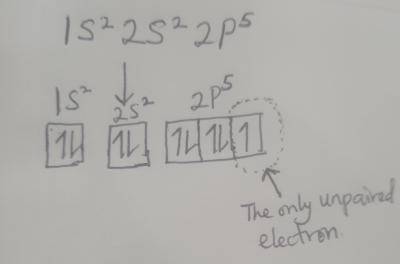 1S² 2S² 2P⁵
1S² 2S² 2P⁵
1L 1L 1L 1L 1
The only unpaired
electron.